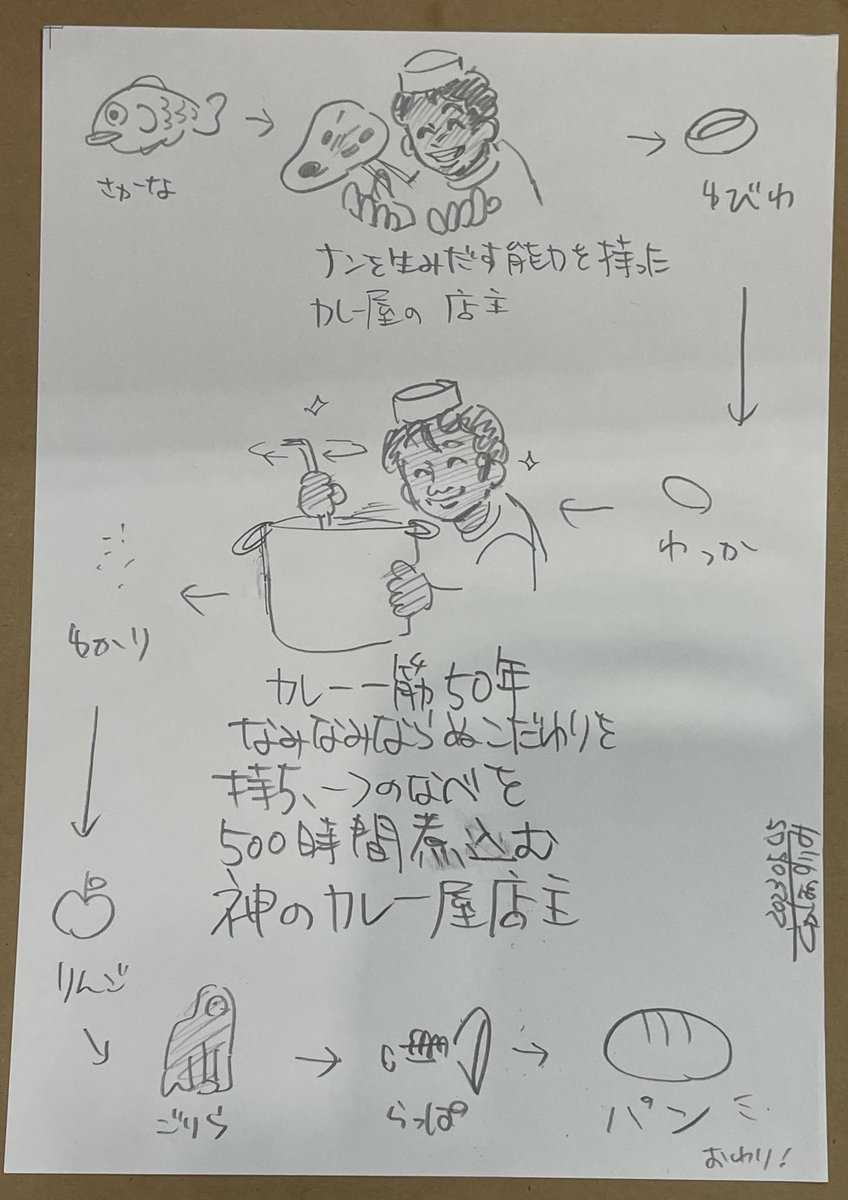 さかーな
ナンを生みだす能力を持った
カレー屋の店主
ゆびわ
わっか
カレー一筋50年
なみなみならぬこだわりを
持ち、一つのなべを
500時間煮込む
神のカレー屋店主
ゆかり
りんご
ごりら
らっぱ
パン
おわり!
20230505